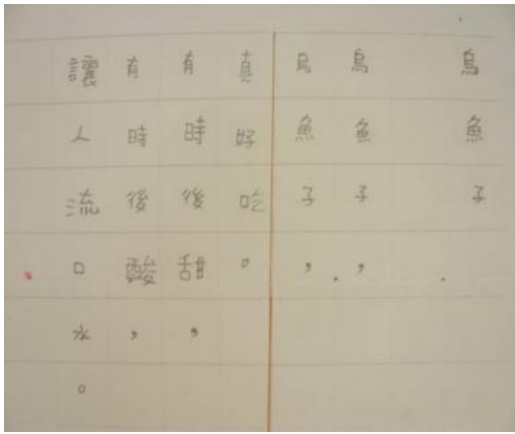 烏魚子
烏魚子，
烏魚子，
真好吃。
有時後甜，
有時後酸，
讓人流口水。